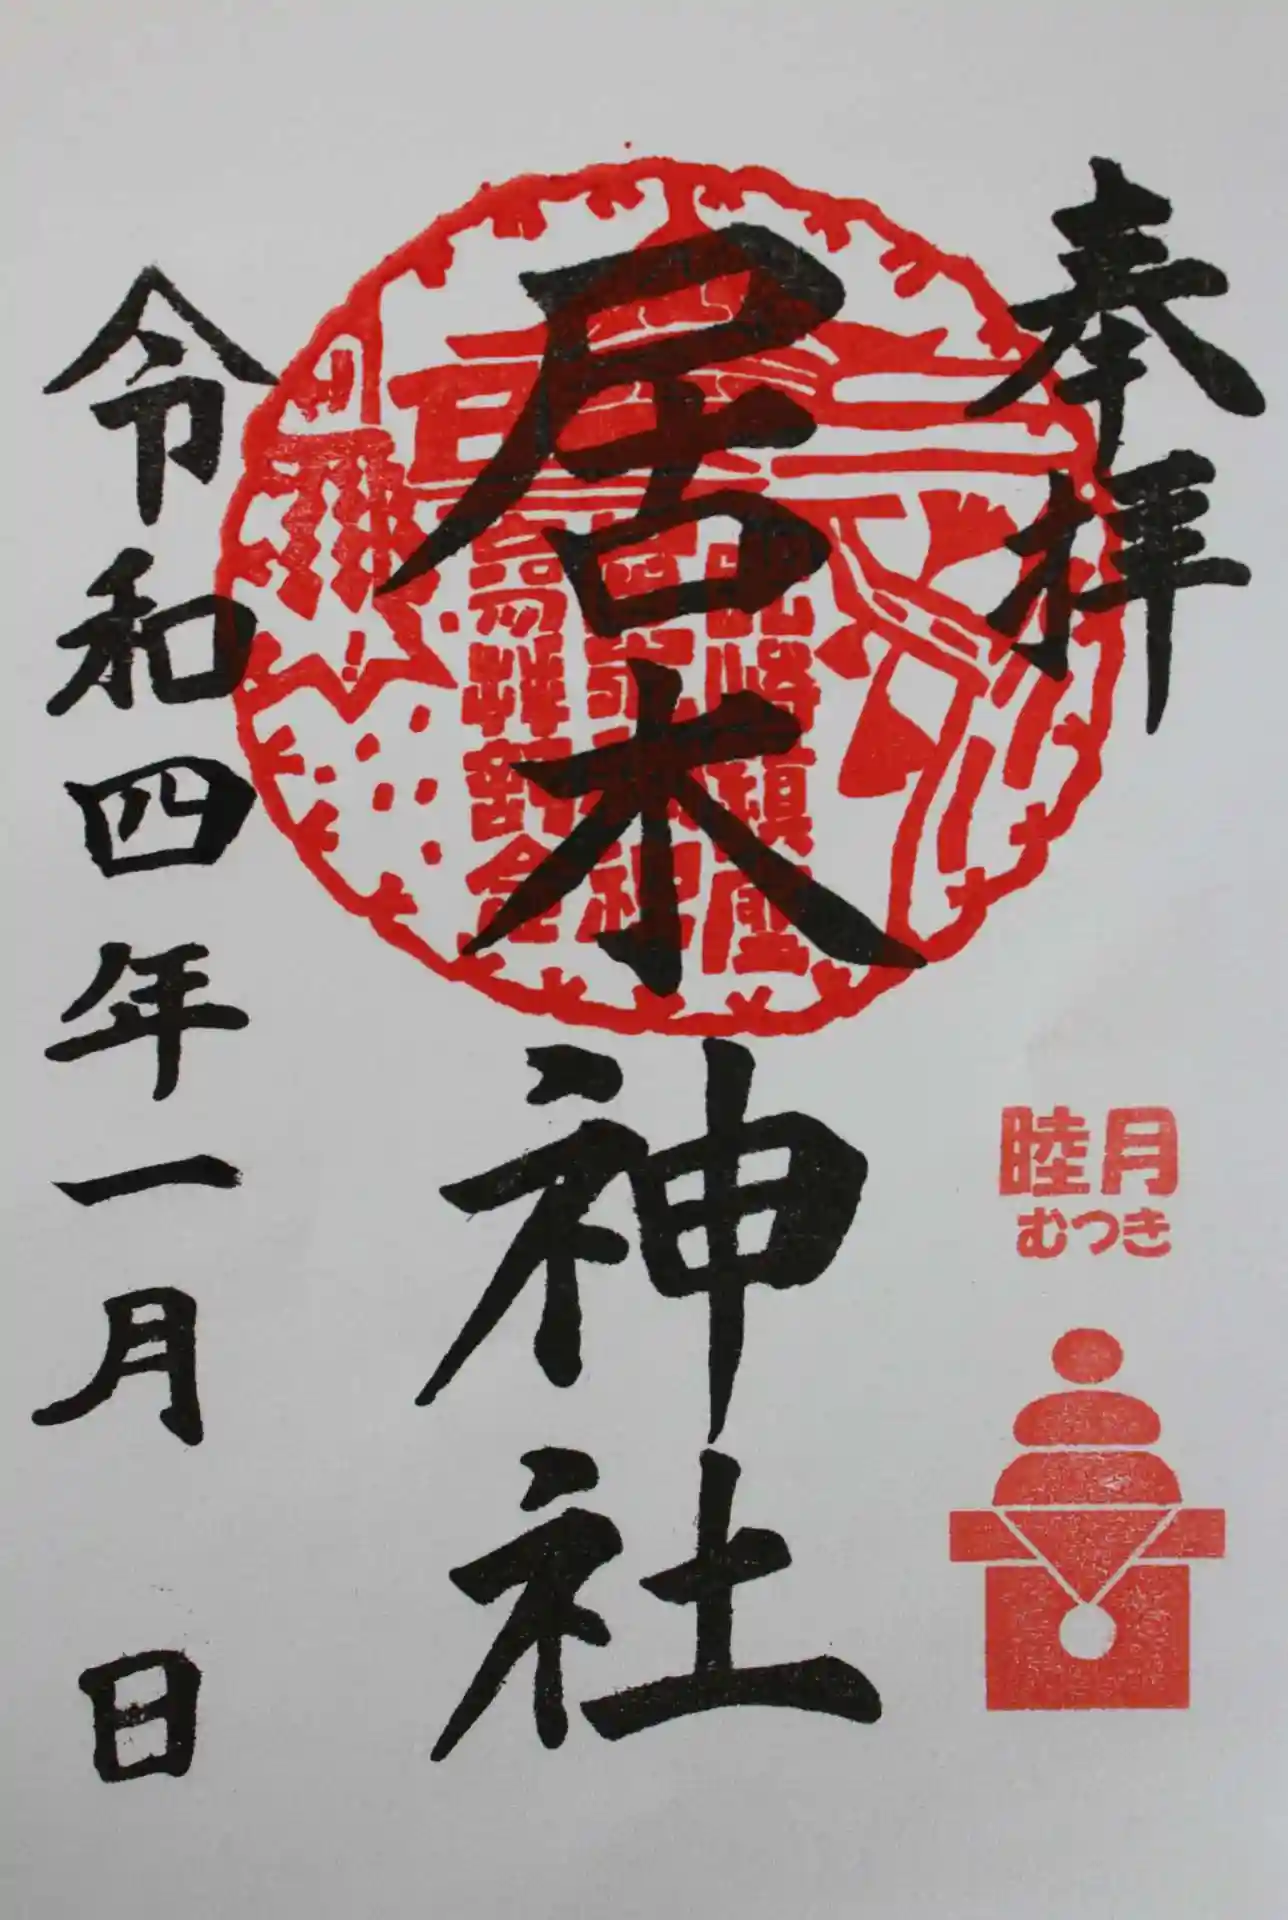 奉拝
睦月
むつき
居木神社
令和四年一月 日